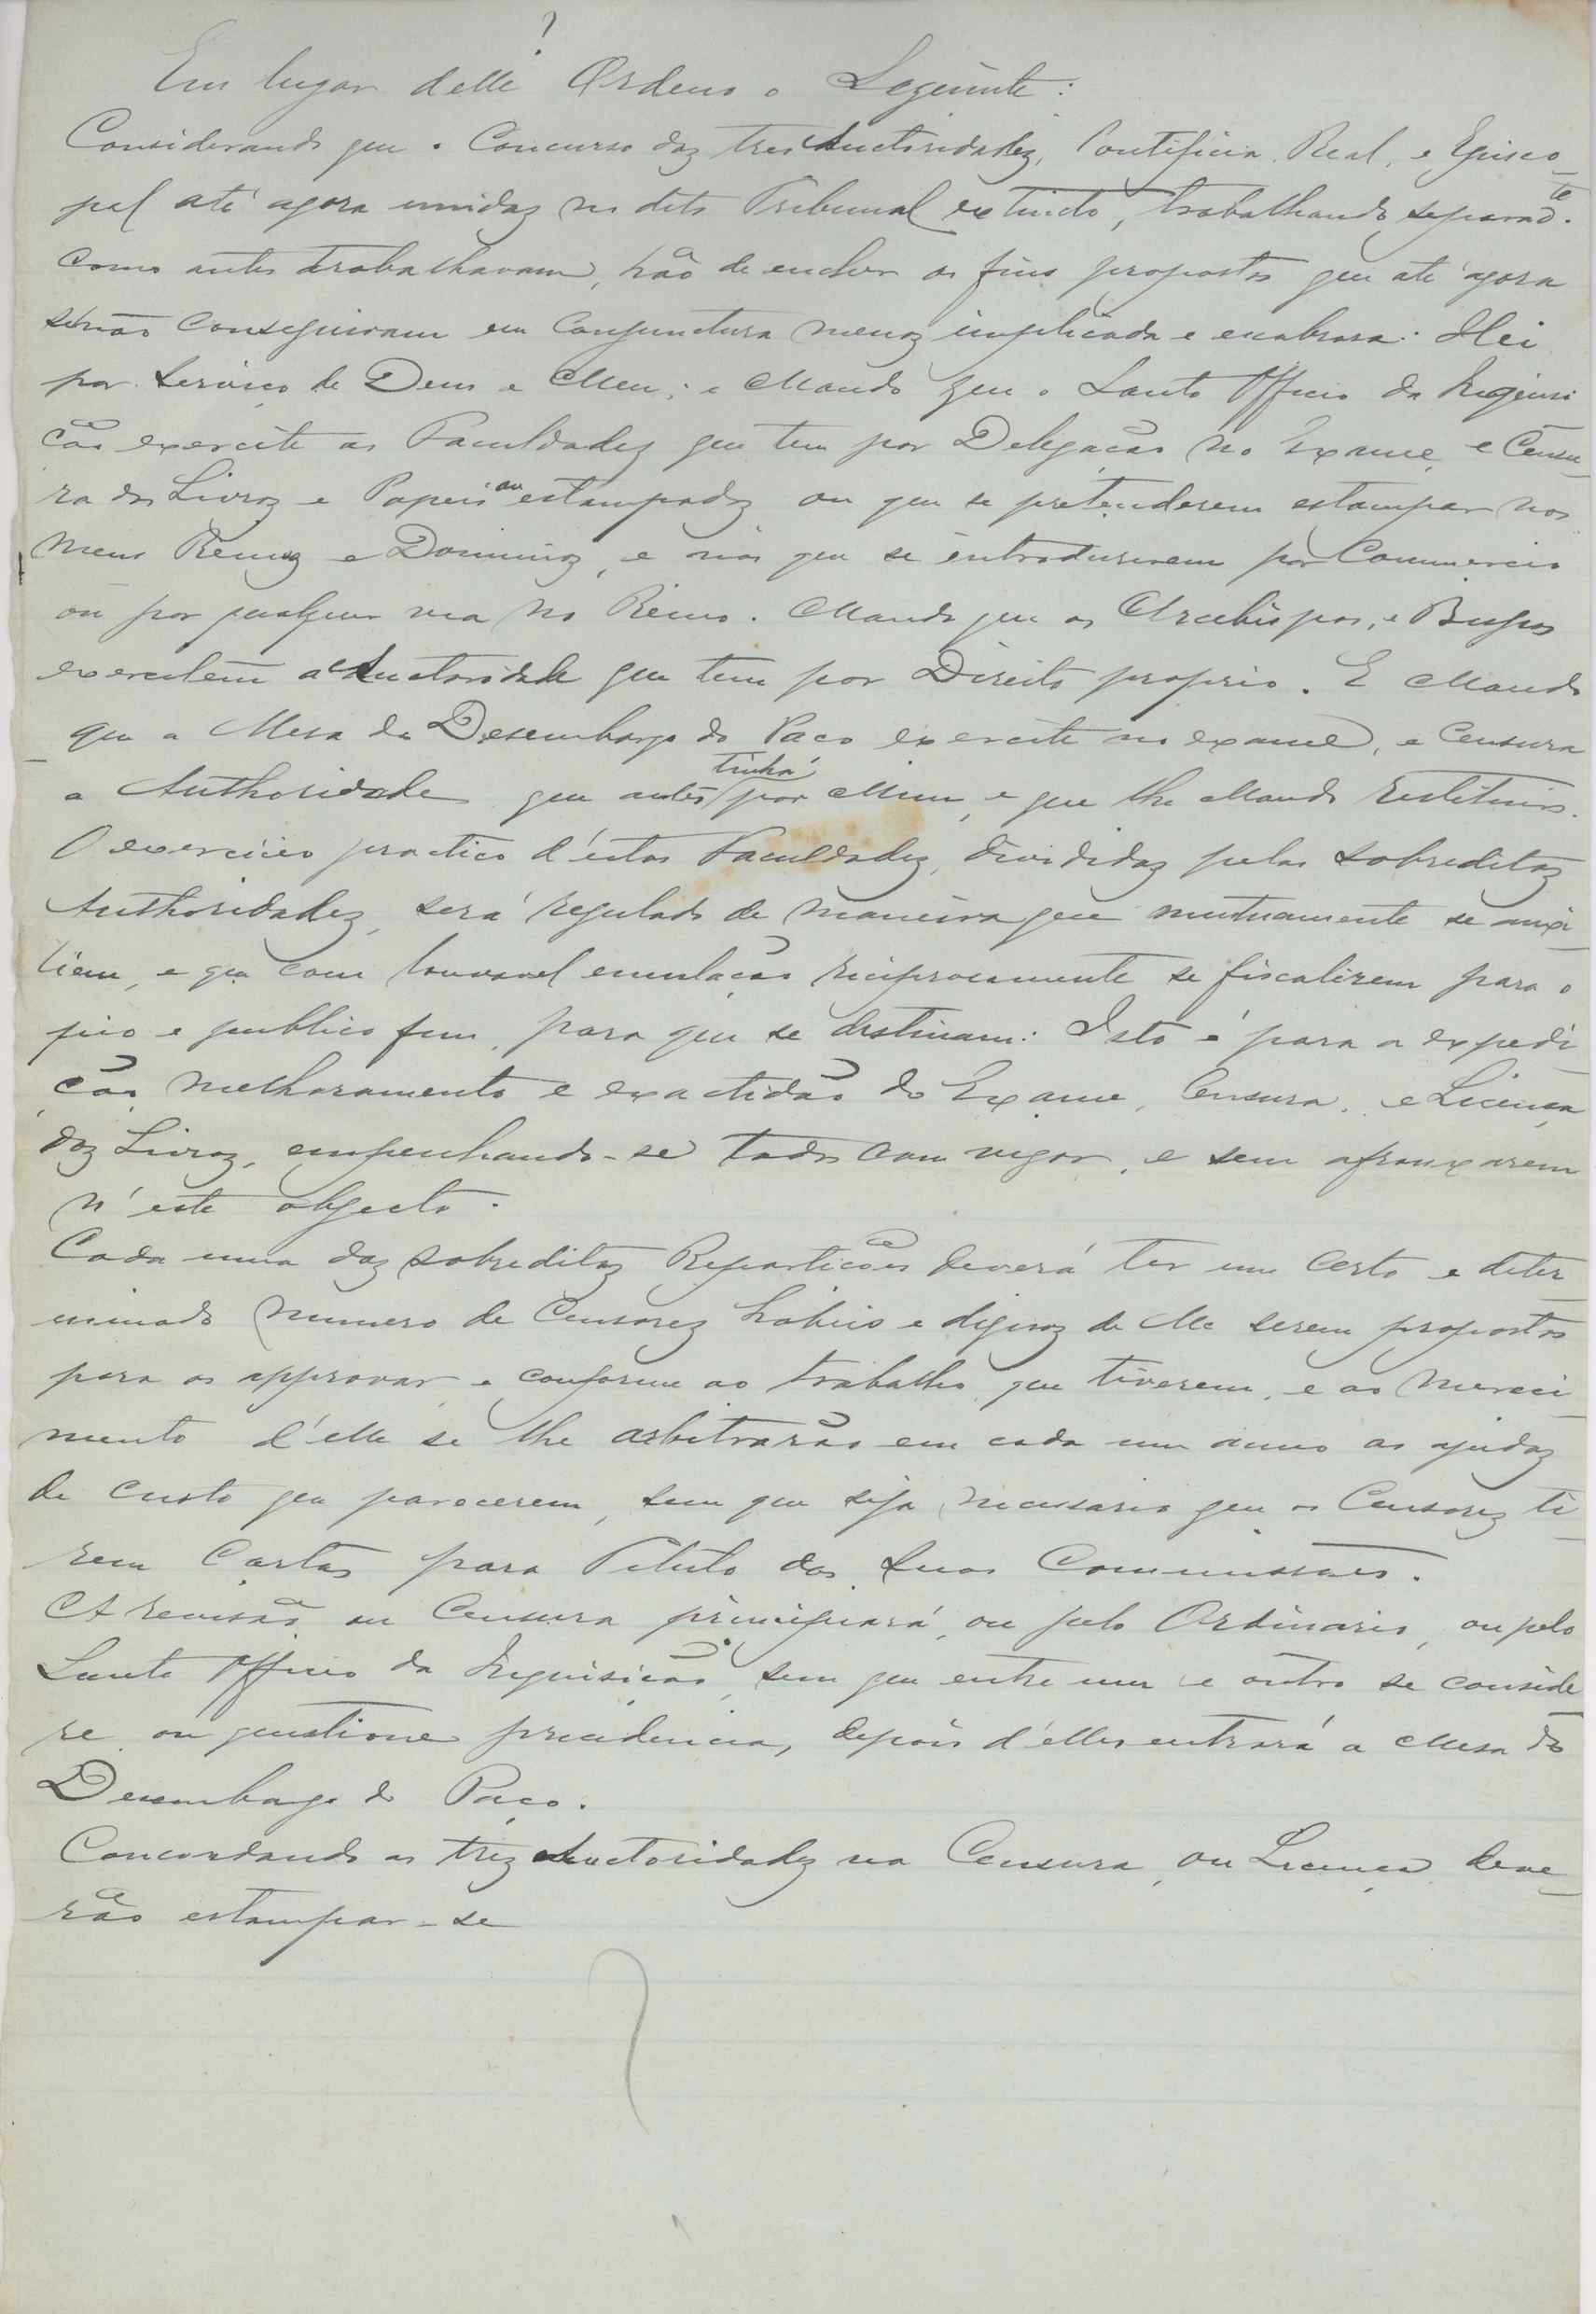 ?
Em lugar delle Ordeno o Seguinte:
Considerando que o Concurso das tres Auctoridadez, Pontificia, Real, e Episco
pal até agora unidaz no dito Tribunal extincto, trabalhando separad.te
como antes trabalhavam, hão de encher os fins propostos que até agora
senão conseguiram em Conjunctura menoz implicada e escabrosa: Hei
por Serviço de Deus e Meu; e Mando que o Santo Officio da Inquisi
ção exercite as Faculdadez que tem por Delegação no Exame, e Censu
ra dos Livroz e Papeis ou estampadoz ou que se pretenderem estampar nos
Meus Reinoz e Dominioz, e nos que se introdusirem por Commercio
ou por qualquer via no Reino. Mando que os Arcebispos, e Bispos
exercitem a Auctoridade que tem por Direito proprio. E Mando
que a Mesa do Desembargo do Paço exercite no exame, e Censura
a Authoridade que antes tinha por Mim, e que lhe Mando restituir.
O exercicio practico d'estas Faculdadez, divididaz pelas sobreditaz
Authoridadez, será regulado de maneira que mutuamente se auxi
liem, e que com louvavel emulação reciprocamente se fiscalizem para o
pio e publico fim, para que se destinam: Isto é para a expedi
ção, melhoramento e exactidão do Exame, Censura, e Licença
doz Livroz, empenhando-se todos com vigor, e sem afrouxarem
n'este objecto.
Cada uma daz sobreditaz Repartições deverá ter um certo e deter
minado numero de Censorez habeis e dignoz de Me serem propostos
para os approvar, e conforme ao trabalho, que tiverem, e ao mereci
mento d'elle se lhe arbitrarão em cada um anno as ajudaz
de custo que parecerem, sem que seja necessario que os Censorez ti
rem Cartas para Titulo das suas Commissões.
A revisão ou Censura principiará, ou pelo Ordinario, ou pelo
Santo Officio da Inquisição, sem que entre um e outro se conside
re ou questione precedencia, depois d'elles entrará a Mesa do
Desembargo do Paço.
Concordando as trez Auctoridadez na Censura, ou Licença deve
rão estampar-se